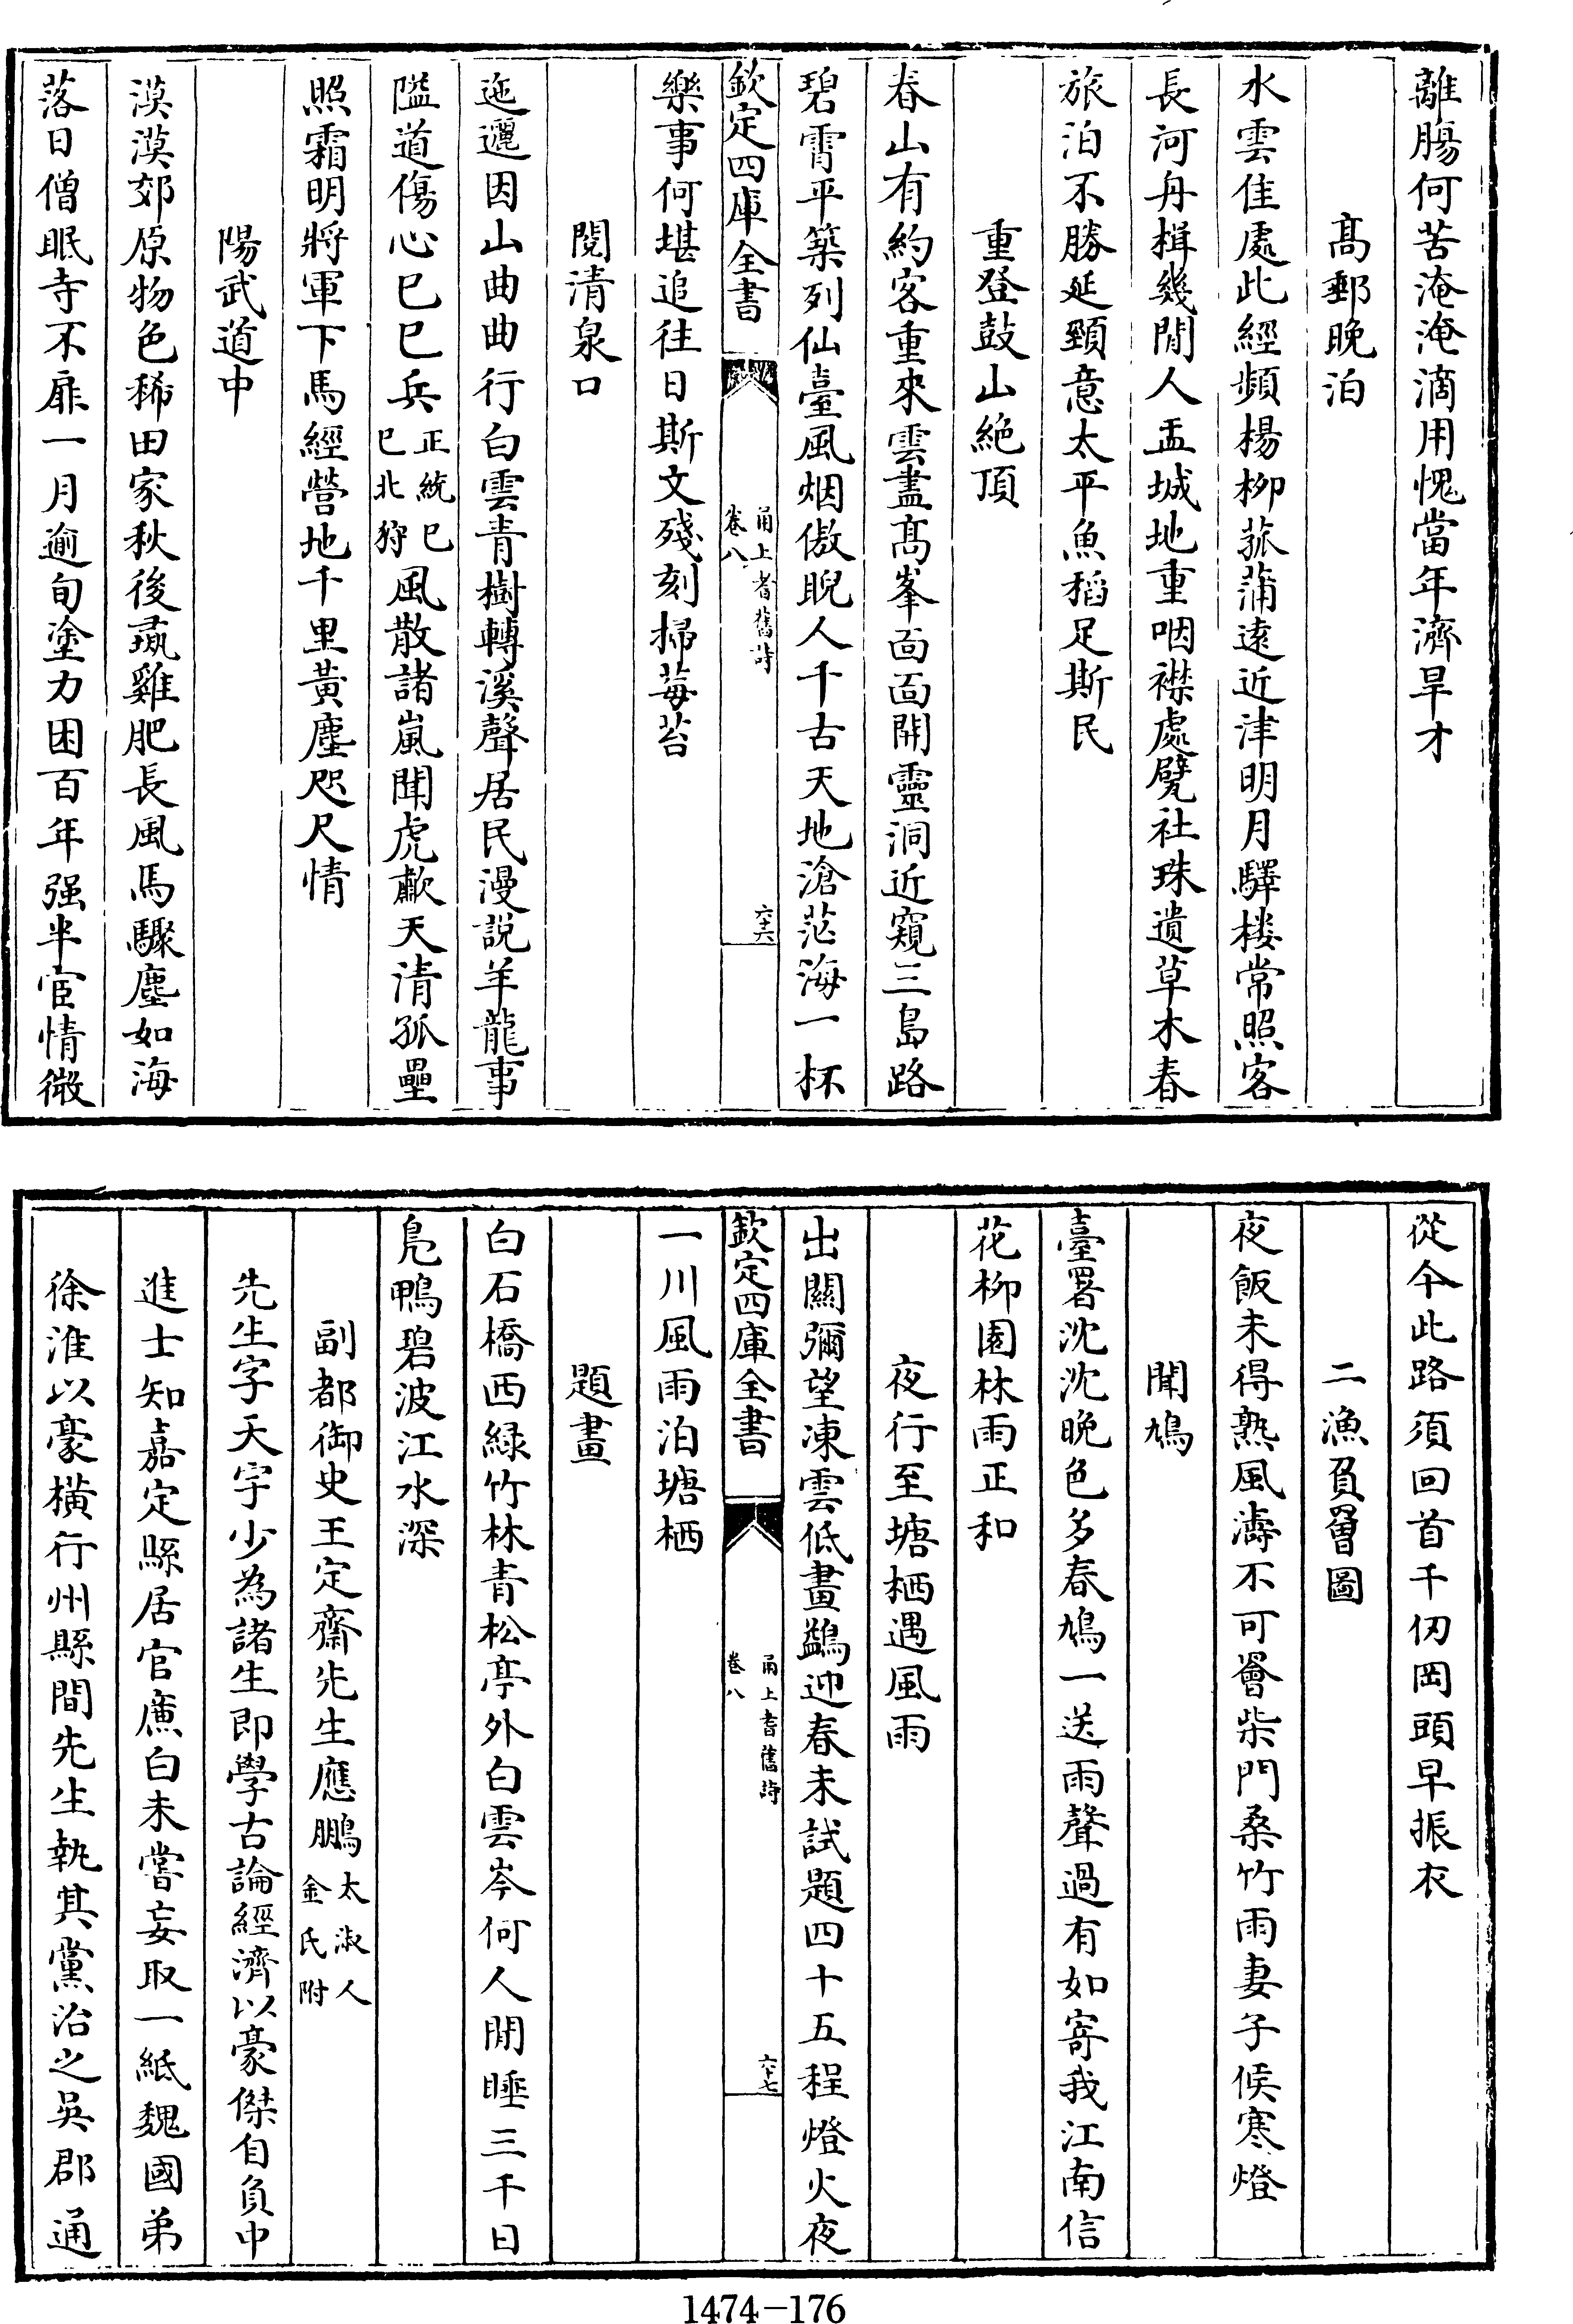 離腸何苦淹淹滴用愧當年濟旱才
高郵晚泊
水雲佳處此經頻楊柳菰蒲遠近津明月驛樓常照客
長河舟楫幾閒人盂城地重咽襟處甓社珠遺草木春
旅泊不勝延頸意太平魚稻足斯民
重登鼓山絶頂
春山有約客重來雲盡髙峯面面開靈洞近窺三島路
碧霄平築列仙臺風烟傲睨人千古天地滄茫海一杯
欽定四庫全書
甬上耆舊詩
卷八
六十六
樂事何堪追往日斯文殘刻掃莓苔
閱清泉口
迤邐因山曲曲行白雲青樹轉溪聲居民漫説羊龍事
隘道傷心己巳兵正統己巳北狩風散諸嵐聞虎歗天清孤壘
照霜明將軍下馬經營地千里黃塵咫尺情
陽武道中
漠漠郊原物色稀田家秋後瓻雞肥長風馬驟塵如海
落日僧眠寺不扉一月逾旬塗力困百年强半宦情微
從今此路須回首千仞岡頭早振衣
二漁負罾圖
夜飯未得熟風濤不可罾柴門桑竹雨妻子候寒燈
聞鳩
臺署沈沈晚色多春鳩一送雨聲過有如寄我江南信
花柳園林雨正和
夜行至塘栖遇風雨
出關彌望凍雲低畫鷁迎春未試題四十五程燈火夜
欽定四庫全書
甬上耆舊詩
卷八
六十七
一川風雨泊塘栖
題畫
白石橋西緑竹林青松亭外白雲岑何人閒睡三千日
鳬鴨碧波江水深
副都御史王定齋先生應鵬太淑人金氏附
先生字天宇少為諸生即學古論經濟以豪傑自負中
進士知嘉定縣居官廉白未嘗妄取一紙魏國弟
徐淮以豪橫行州縣間先生執其黨治之吳郡通
1474-176